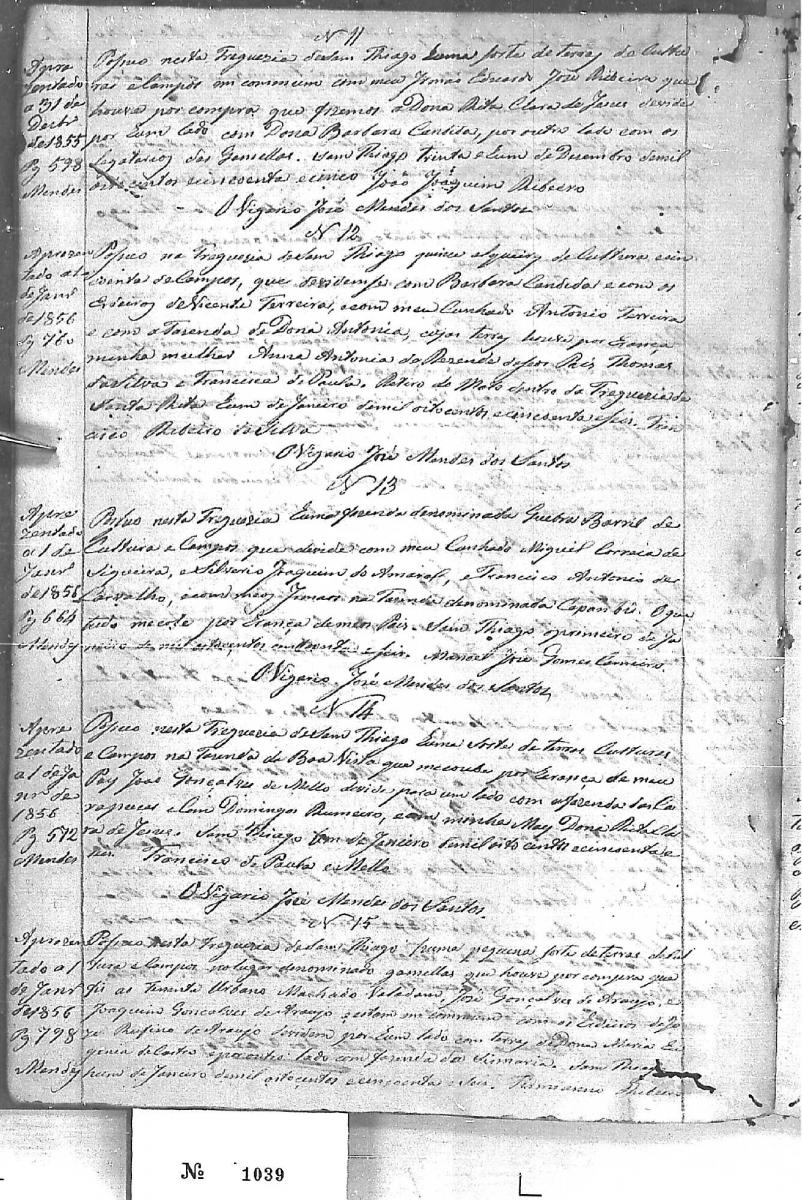 N 11
Apre
zentado
a 31 de
Dezbr
de 1855
Pg 598
Mendes
Possuo nesta Freguezia de Sam Thiago huma sorte de terras de Cultu
ras e Campos em commum com meu Irmao Eduardo José Ribeiro que
houve por compra que fizemos a Dona Rita Clara de Jesus devide
por hum lado com Dona Barbara Candida, por outro lado com os
Legatarios das Gamellas. Sam Thiago trinta e hum de Dezembro de mil
oito centos e sincoenta e cinco João Joaquim Ribeiro
O Vigario José Mendes dos Santos
N 12
Aprezen
tado a 1
de Janr
de 1856
Pg 760
Mendes
Possuo na Freguezia de Sam Thiago quinze alqueires de Cultura e sin
coenta de Campos, que devidem se com Barbara Candida e com os
Erdeiros de Vicente Ferreira, e com meu Cunhado Antonio Ferreira
e com a Fazenda de Dona Antonia, cujas terras houve por erança
minha mulher Anna Antonia de Rezende de seos Pais Thomas
da Silva e Francisca de Paula. Retiro do Mato dentro da Freguezia de
Santa Rita hum de Janeiro de mil oitocentos e cincoenta e seis. Fran
cisco Ribeiro da Silva
O Vigario José Mendes dos Santos
N 13
Apre
zentado
a 1 de
Janr
de 1856
Pg 664
Mendes
Possuo nesta Freguezia huma fazenda denominada Quebra Barril de
Cultura e Campos que devide com meu Cunhado Miguel Correia de
Siqueira, e Silverio Joaquim do Amaral, e Francisco Antonio de
Carvalho, e com meos Irmaos na Fazenda denominada Capambú. O que
tudo me coube por erança de meos Pais. Sam Thiago o primeiro de Ja
neiro de mil oitocentos e sincoenta e seis. Manoel José Gomes Carneiro.
O Vigario José Mendes dos Santos
N 14
Apre
zentado
a 1 de Ja
nr de
1856
Pg 572
Mendes
Possuo nesta Freguezia de Sam Thiago huma sorte de terras Culturas
e Campos na Fazenda da Boa Vista que me coube por erança de meu
Pay João Gonçalves de Mello devide por um lado com a fazenda das Ca
rapucas e com Domingos Rumeiro, e com minha May Dona Rita Cla
ra de Jesus. Sam Thiago hum de Janeiro de mil oito centos e cincoenta e
seis. Francisco de Paula e Mello
O Vigario José Mendes dos Santos
N 15
Aprezen
tado a 1
de Janr
de 1856
Pg 798
Mendes
Possuo nesta Freguezia de Sam Thiago huma pequena sorte de terras de Cul
tura e Campos no lugar denominado gamellas que houve por compra que
fis ao Tenente Urbano Machado Valadam, José Gonçalves de Araujo, e
Joaquim Gonçalves de Araujo e estam em commum com os Erdeiros de Jo
ze Rufino de Araujo devidem por hum lado com terras de Dona Maria Eu
genia de Castro e por outro lado com fazenda da Sismaria. Sam Thiago
hum de Janeiro de mil oitocentos e cincoenta e seis.
Nº 1039